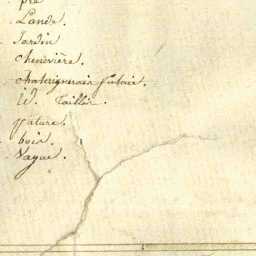 pré
Lande.
Jardin
chenevière.
chateigneraie futaie.
id. Taillis.
pature.
bois.
Vague.